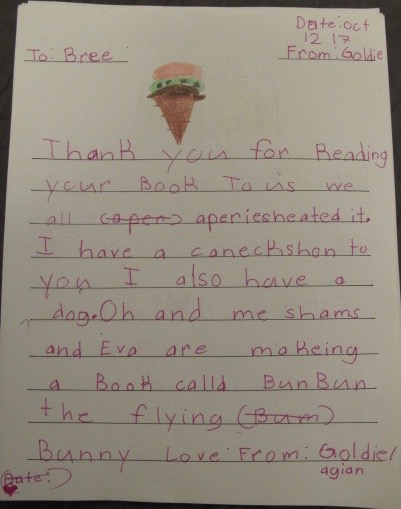 Date: oct
12 17
To: Bree
From: Goldie
Thank you for Reading
your Book To us we
all (apen) aperiesheated it.
I have a caneckshon to
you I also have a
dog. Oh and me shams
and Eva are makeing
a Book calld BunBun
the flying (Bum)
Bunny Love From: Goldie!
agian
(Date:)